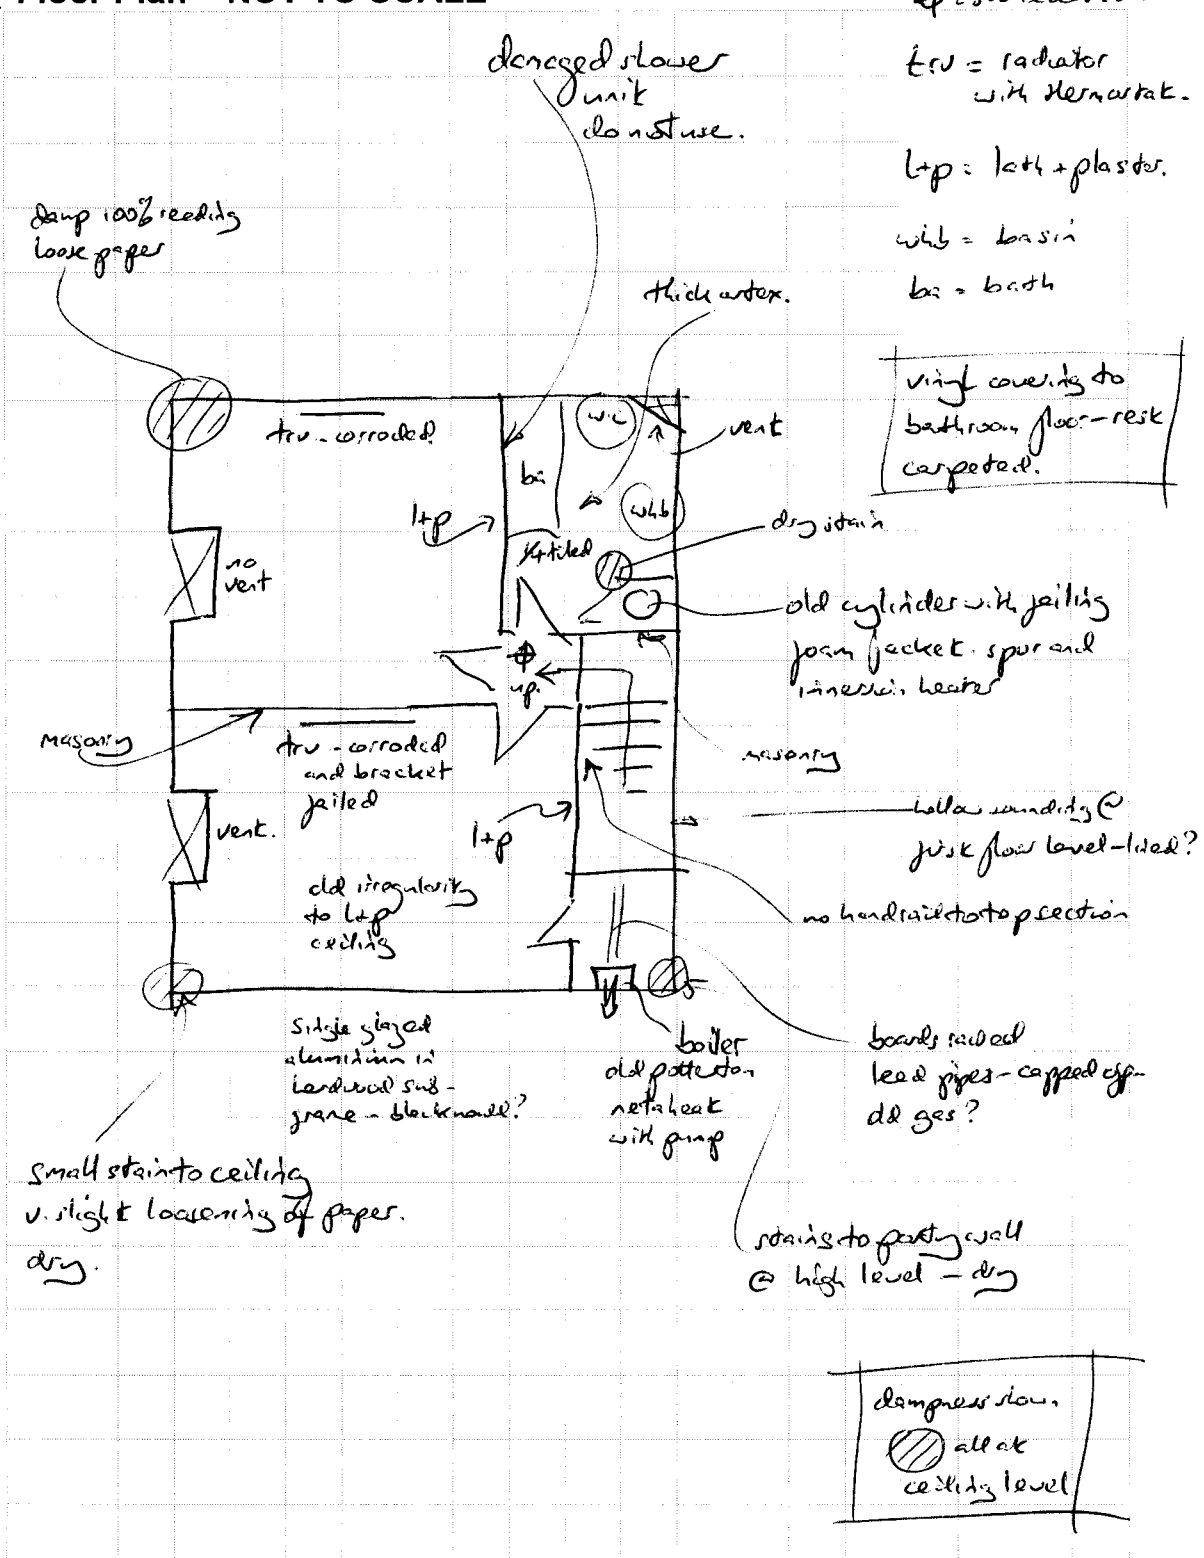 Floor Plan - NOT TO SCALE
trv = radiator
with thermostat.
l+p = lath + plaster.
whb = basin
ba = bath
damaged shower
unit
do not use.
damp 100% reading
loose paper
thick artex.
vinyl covering to
bathroom floor - rest
carpeted.
trv - corroded
wc
vent
ba
l+p
whb
dry stain
1/4 tiled
no
vent
old cylinder with failing
foam jacket. spur and
immersion heater
up.
masonry
trv - corroded
and bracket
failed
masonry
vent.
l+p
hollow sounding @
first floor level - lined?
old irregularity
to l+p
ceiling
no handrail to top section
single glazed
aluminium in
hardwood sub-
frame - black mould?
boiler
old potterton
netaheat
with pump
boards raised
lead pipes - capped off -
old gas?
small stain to ceiling
v. slight loosening of paper.
dry.
stains to party wall
@ high level - dry
dampness show.
all at
ceiling level